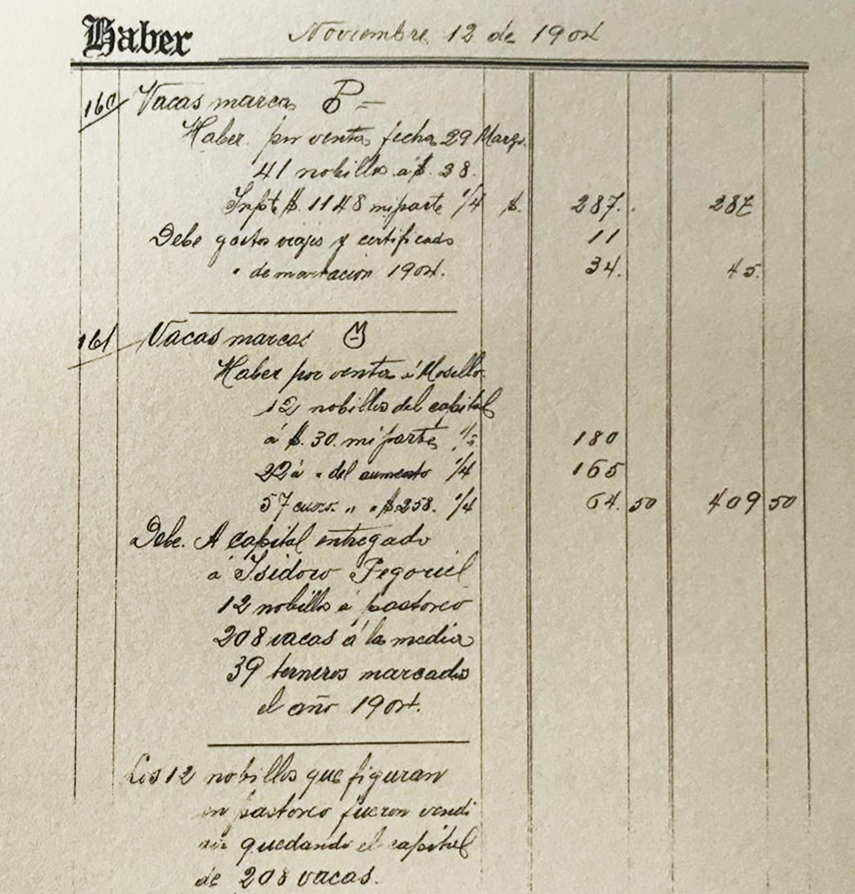 Haber Noviembre 12 de 1904
160 Vacas marcas
Haber por venta fecha 29 Marzo
41 nobillos á $. 28.
Impte $. 1148 mi parte 1/4 $. 287. 287
Debe gastos viajes y certificado 11
" de marcacion 1904. 34. 45.
161 Vacas marcas
Haber por venta á Mosello
12 nobillos del capital
á $. 30. mi parte 1/2 180
22 á " del aumento 1/4 165
57 cuers. " " $ 258. 1/4 64. 50 409 50
Debe. A capital entregado
á Isidoro
12 nobillos á pastoreo
208 vacas á la media
39 terneros marcados
el año 1904.
Los 12 nobillos que figuran
en pastoreo fueron vendi
quedando el capital
de 208 vacas.